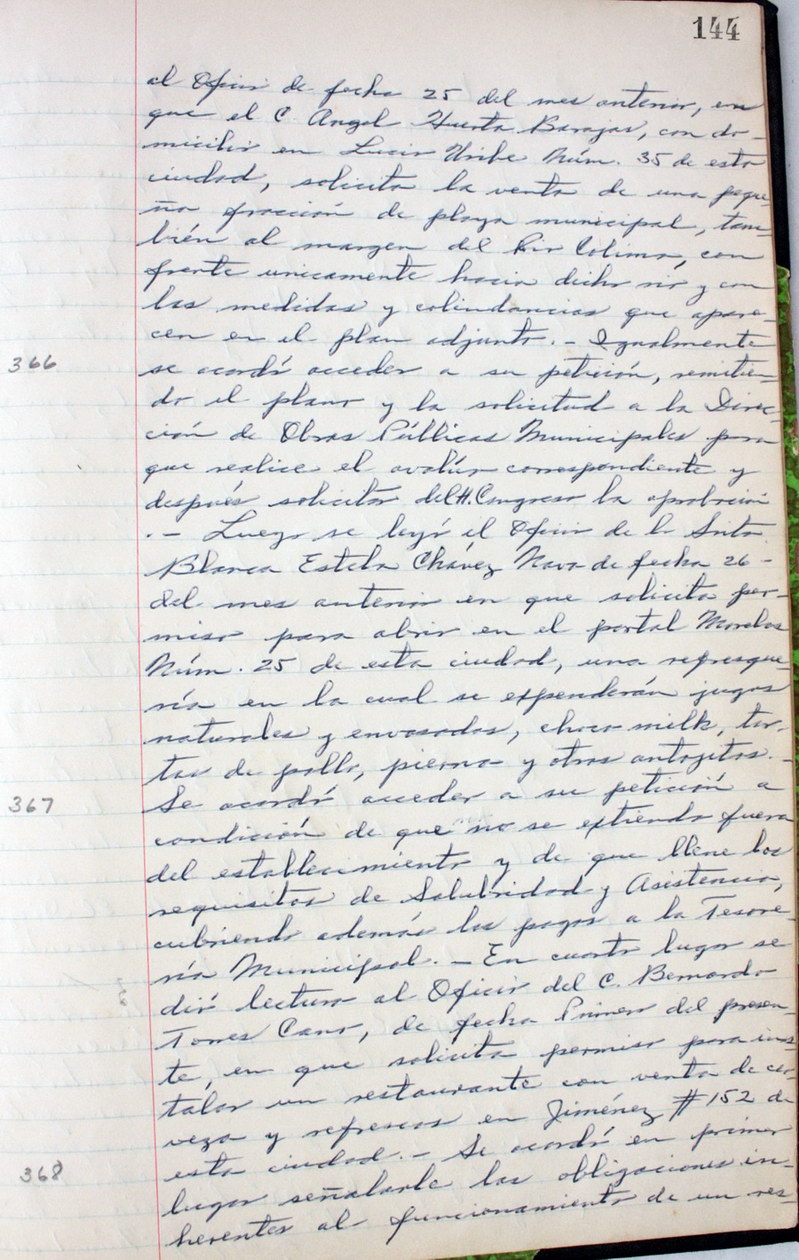 144
al Oficio de fecha 25 del mes anterior, en
que el C. Angel Huerta Barajas, con do-
micilio en Lucio Uribe Núm. 35 de esta
ciudad, solicita la venta de una peque
ña fracción de playa municipal, tam-
bién al margen del Rio Colima, con
frente unicamente hacia dicho rio y con
las medidas y colindancias que apare-
cen en el plan adjunto. - Igualmente
366
se acordó acceder a su petición, remitien-
do el plano y la solicitud a la Direc-
ción de Obras Públicas Municipales para
que realice el avalúo correspondiente y
después solicitar del H. Congreso la aprobación
.- Luego se leyó el Oficio de la Srita.
Blanca Estela Chávez Nava de fecha 26 -
del mes anterior en que solicita per-
miso para abrir en el portal Morelos
Núm. 25 de esta ciudad, una refresque-
ría en la cual se expenderán jugos
naturales y envasados, choco milk, tor-
tas de pollo, pierna y otros antojitos. -
367
Se acordó acceder a su petición a
condición de que no se extienda fuera
del establecimiento y de que llene los
requisitos de Salubridad y Asistencia,
cubriendo además los pagos a la Tesore-
ría Municipal. - En cuarto lugar se
dió lectura al Oficio del C. Bernardo
Torres Cano, de fecha Primero del presen-
te, en que solicita permiso para ins-
talar un restaurante con venta de cer-
veza y refrescos en Jiménez #152 de
esta ciudad. - Se acordó en primer
368
lugar señalarle las obligaciones in-
herentes al funcionamiento de un res-